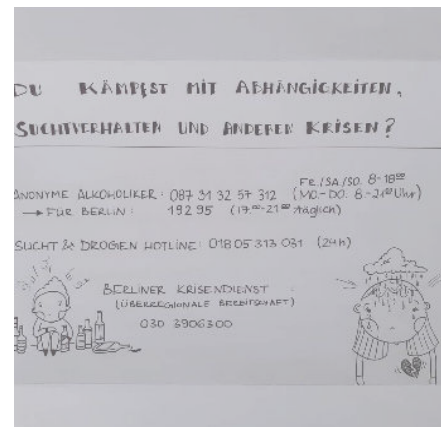 DU KÄMPFST MIT ABHÄNGIGKEITEN,
SUCHTVERHALTEN UND ANDEREN KRISEN?
FR./SA./SO. 8-18⁰⁰
ANONYME ALKOHOLIKER: 087 31 32 57 312 (MO.-DO. 8-21⁰⁰ Uhr)
→ FÜR BERLIN: 192 95 (17⁰⁰-21⁰⁰ täglich)
SUCHT & DROGEN HOTLINE: 01805 313 031 (24h)
BERLINER KRISENDIENST:
(ÜBERREGIONALE BEREITSCHAFT)
030 3906300